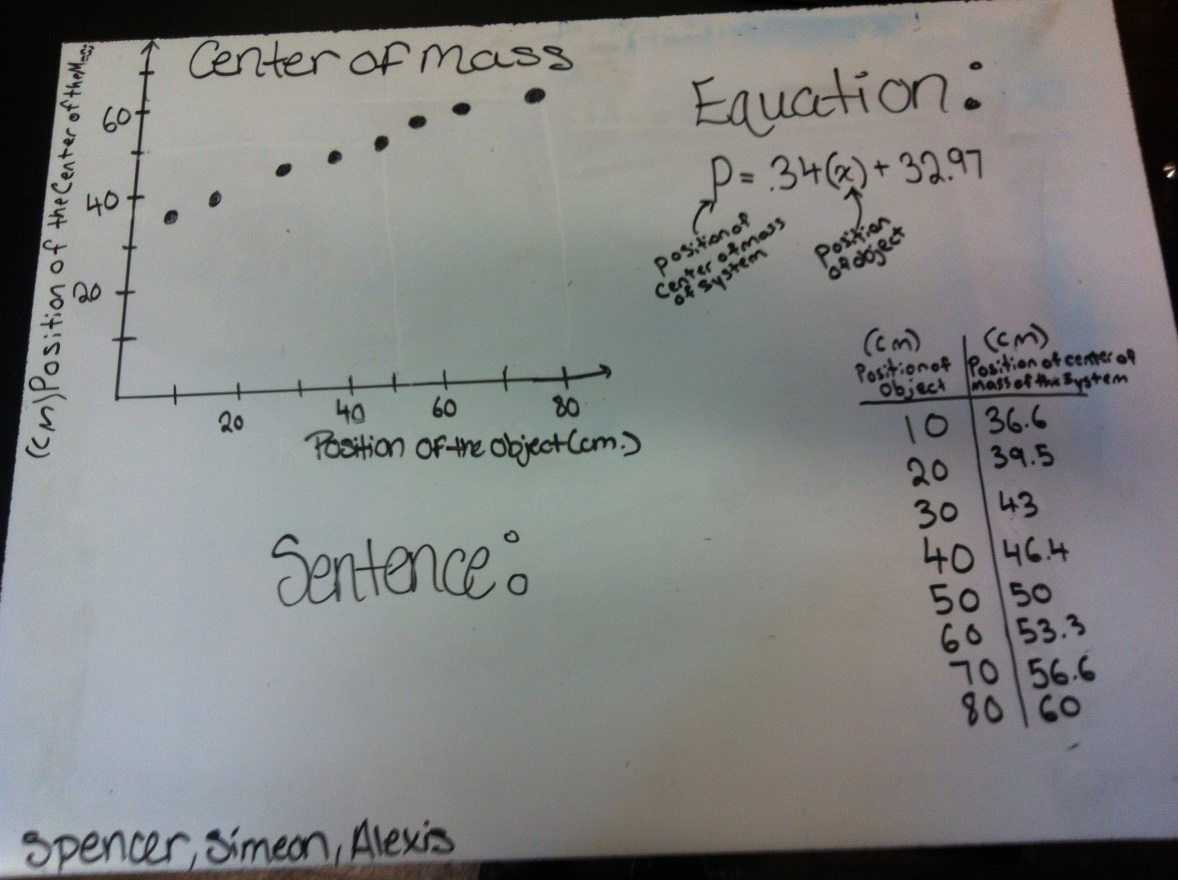 Center of mass
(cm) Position of the Center of the Mass
60
40
20
20
40
60
80
Position of the object (cm.)
Equation:
P = .34(x) + 32.97
Position of
Center of mass
of system
Position
of object
(cm)
Position of
Object
(cm)
Position of center of
mass of the system
10 36.6
20 39.5
30 43
40 46.4
50 50
60 53.3
70 56.6
80 60
Sentence:
Spencer, Simeon, Alexis